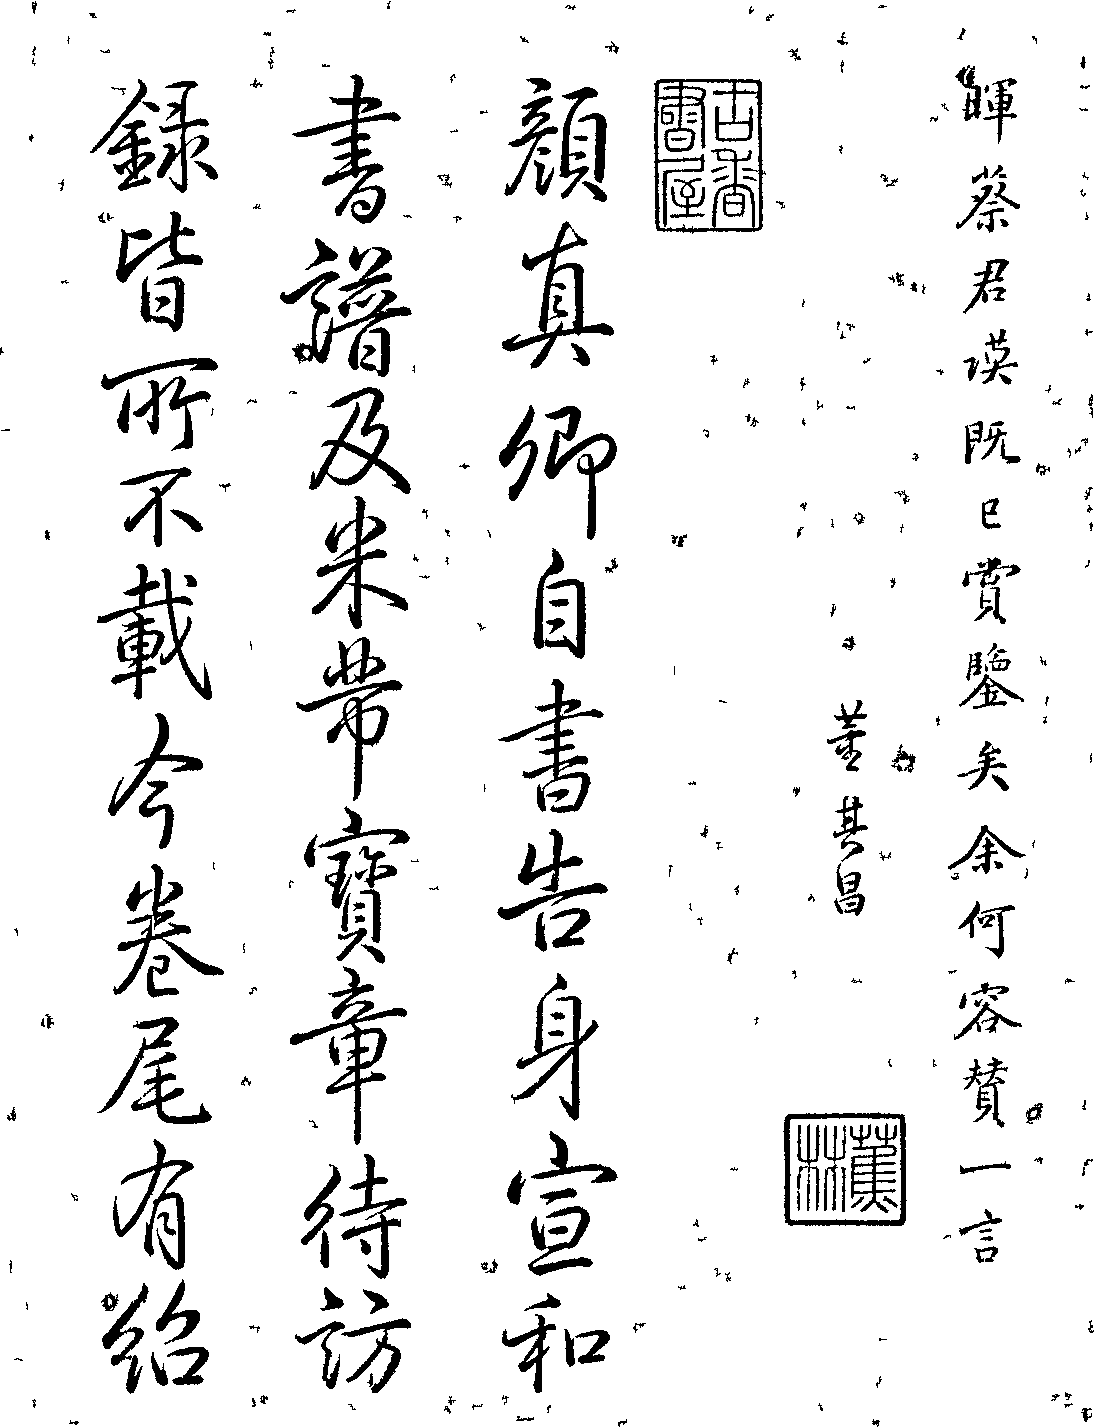 暉蔡君謨既已賞鑒矣余何容賛一言
董其昌
蕉林
古香書屋
顔真卿自書告身宣和
書譜及米芾寶章待訪
録皆所不載今卷尾有紹